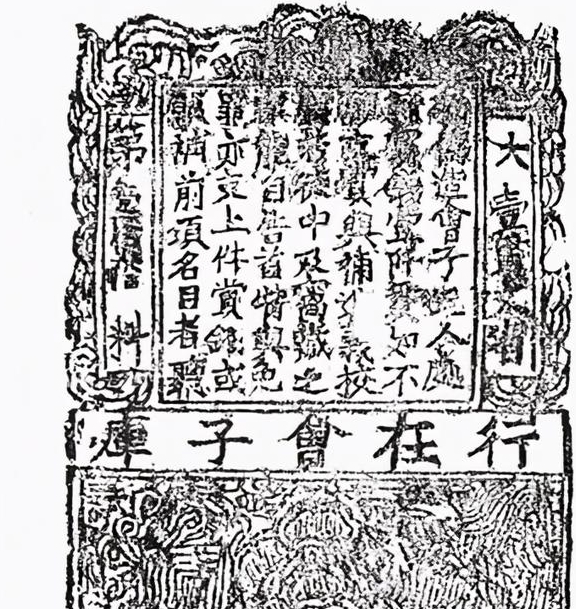 大壹貫文省
偽造會子犯人處
賞錢壹阡貫如不
支賞與補進義校
徒中及窩藏之
能自告首特與免
罪亦支上件賞錢或
願補前項名目者聽
第壹 料
行在會子庫